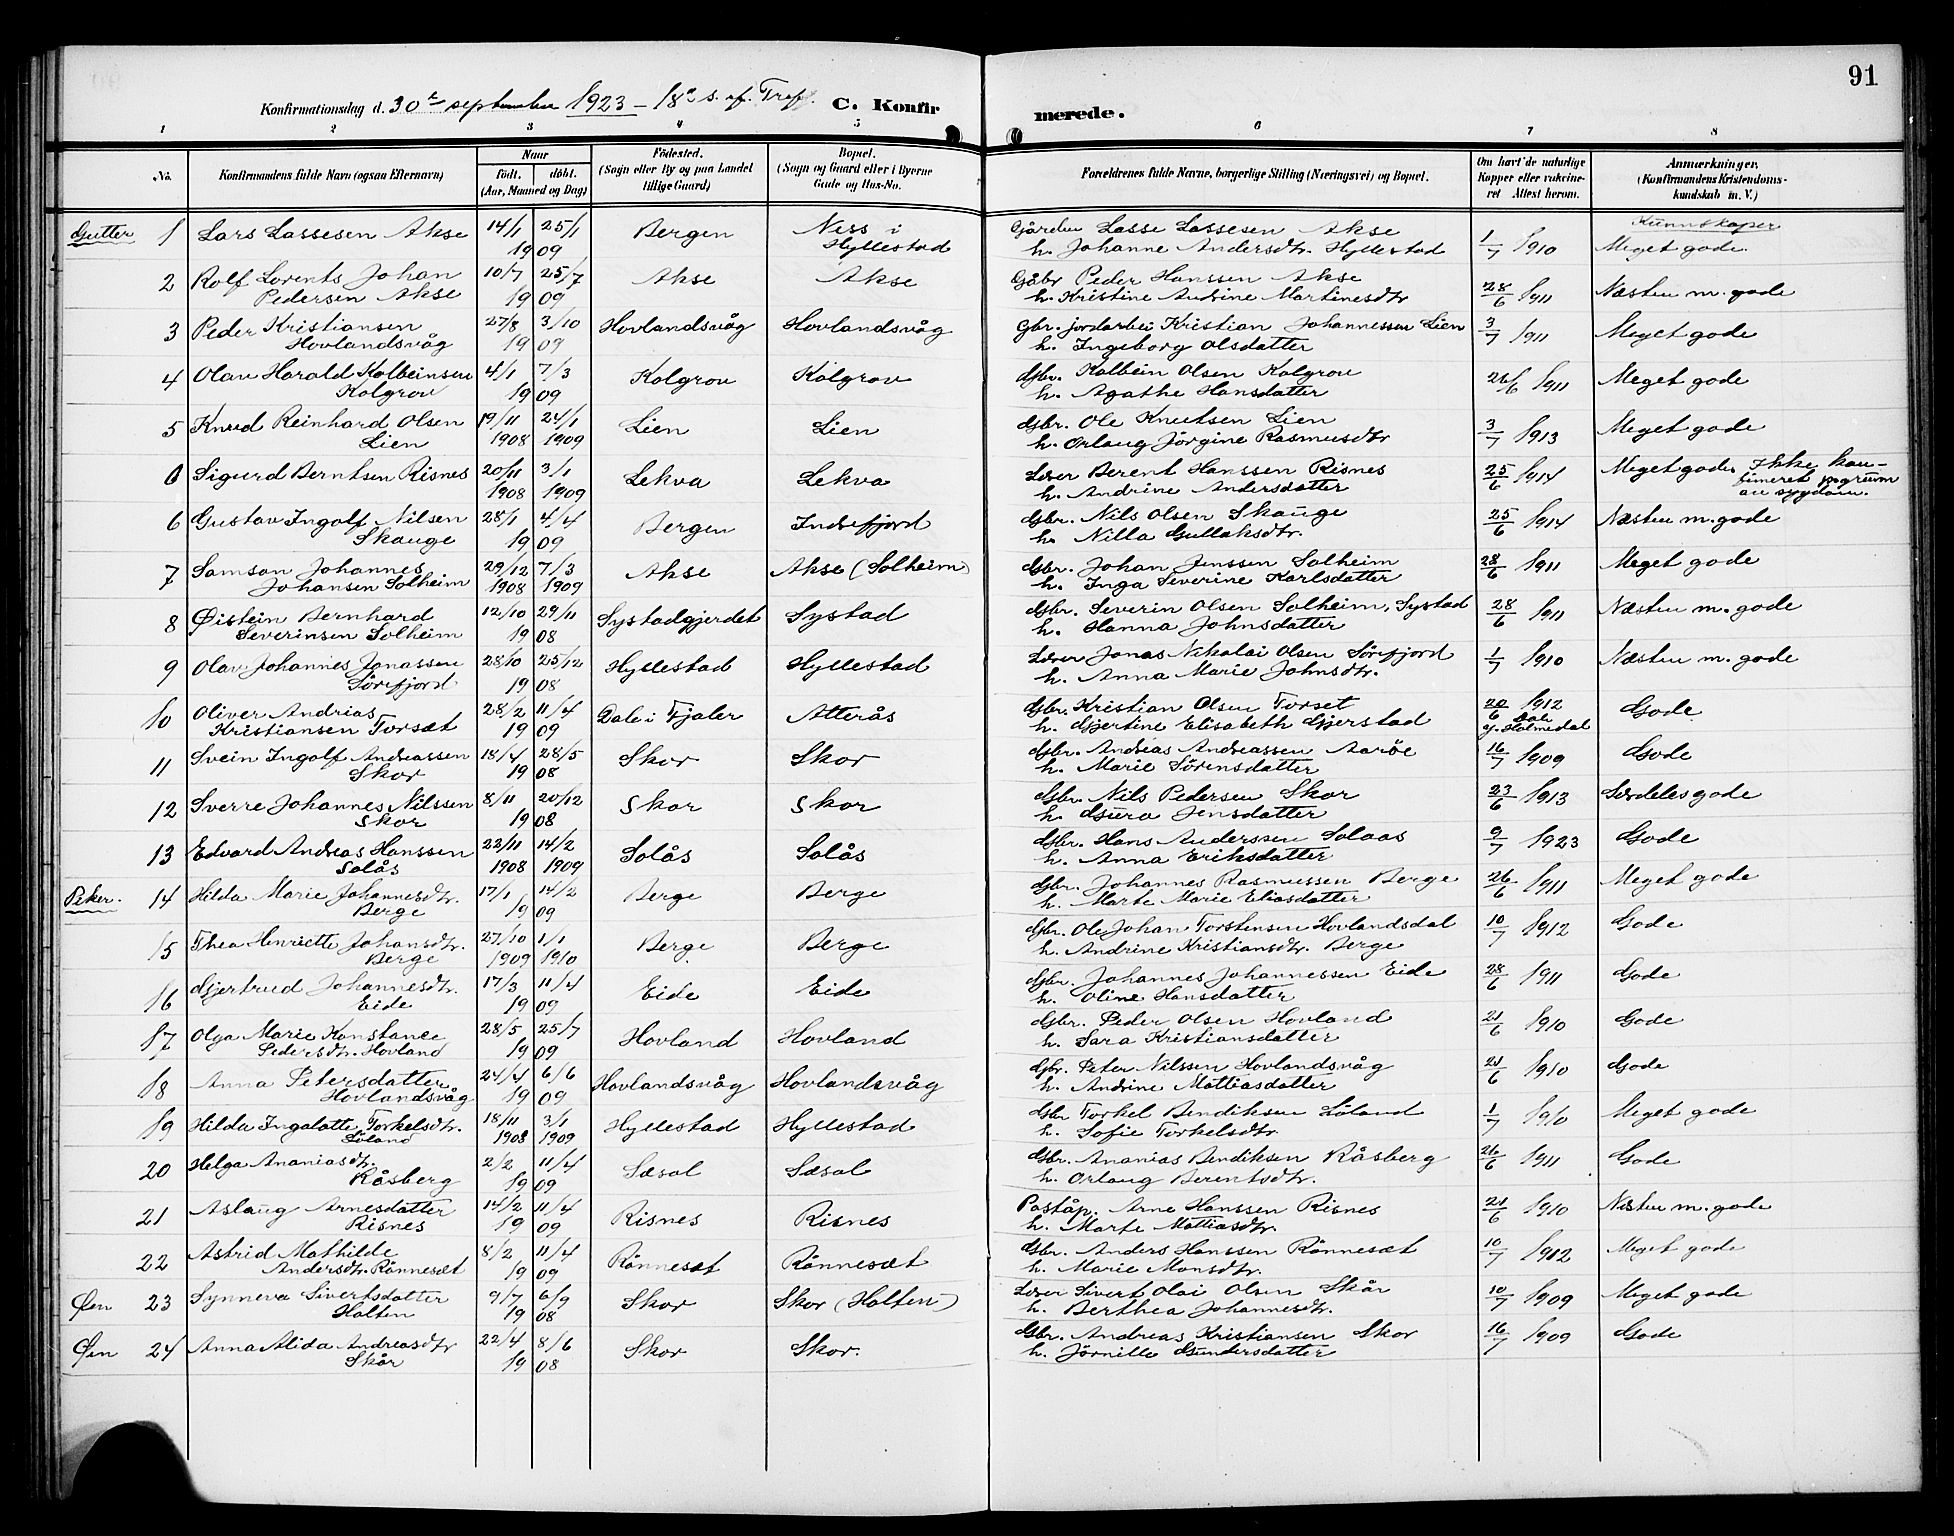 91
Konfirmationsdag d. 30te september 1923 - 18de s. ef. Tref. C. Konfirmerede.
1 2 3 4 5 6 7 8
No. Konfirmandens fulde Navn (ogsaa Efternavn) Naar født. døbt. (Aar, Maaned og Dag) Fødested. (Sogn eller By og paa Landet tillige Gaard) Bopæl. (Sogn og Gaard eller i Byerne Gade og Hus-No. Forældrenes fulde Navne, borgerlige Stilling (Næringsvei) og Bopæl. Om havt de naturlige Kopper eller vakcineret Attest herom. Anmærkninger. (Konfirmandens Kristendomskundskab m. V.)
Kunnskaper
Gutter 1 Lars Lassesen Akse 14/1 25/1 Bergen Ness i Gårdbr Lasse Lassesen Akse
19 09 Hyllestad h. Johanne Andersdtr. Hyllestad 1/7 1910 Meget gode.
2 Rolf Lorents Johan 10/7 25/7 Akse Akse Gåbr Peder Hanssen Akse
Pedersen Akse 19 09 h. Kristine Andrine Martinesdtr 28/6 1911 Næsten m. gode
3 Peder Kristiansen 27/8 3/10 Hovlandsvåg Hovlandsvåg Gbr. jordarbei Kristian Johannessen Lien 3/7 1911 Meget gode
Hovlandsvåg 19 09 h. Ingeborg Olsdatter
4 Olav Harald Kolbeinsen 4/1 7/3 Kolgrov Kolgrov Gbr. Kolbein Olsen Kolgrov 26/6 1911 Meget gode
Kolgrov 19 09 h. Agathe Hansdatter
5 Knud Reinhard Olsen 19/11 24/1 Lien Lien Gbr. Ole Knutsen Lien 3/7 1913 Meget gode
Lien 1908 1909 h. Orlaug Jörgine Rasmusdtr
0 Sigurd Berntsen Risnes 20/11 3/1 Lekva Lekva Lærer Berent Hanssen Risnes 25/6 1914 Meget gode. Ikke kon-
1908 1909 h. Andrine Andersdatter firmeret pågrunn
av sygdom.
6 Gustav Ingolf Nilsen 28/1 4/4 Bergen Indrefjord Gbr. Nils Olsen Skauge 25/6 1914 Næsten m. gode
Skauge 19 09 h. Nilla Gullaksdtr.
7 Samson Johannes 29/12 7/3 Akse Akse (Solheim) Gbr. Johan Jenssen Solheim 28/6 1911 Meget gode
Johansen Solheim 1908 1909 h. Inga Severine Karlsdatter
8 Øistein Bernhard 12/10 29/11 Systadgjerdet Systad Gbr. Severin Olsen Solheim, Systad 28/6 1911 Næsten m. gode
Severinsen Solheim 19 08 h. Hanna Johnsdatter
9 Olav Johannes Jonassen 28/10 25/12 Hyllestad Hyllestad Lærer Jonas Nikolai Olsen Sörefjord 1/7 1910 Næsten m. gode
Sörefjord 19 08 h. Anna Marie Johnsdtr.
10 Oliver Andrias 28/2 11/4 Dale i Fjaler Atterås Gbr. Kristian Olsen Torset 20/6 1912 Gode
Kristiansen Torsæt 19 09 h. Gjertine Elisabeth Gjerstad Holmedal
11 Svein Ingolf Andreassen 18/4 28/5 Skor Skor Gbr. Andreas Andreassen Aaröe 16/7 1909 Gode
Skor 19 08 h. Marie Sörensdatter
12 Sverre Johannes Nilssen 8/11 20/12 Skor Skor Gbr. Nils Pedersen Skor 23/6 1913 Særdeles gode
Skor 19 08 h. Guro Jensdatter
13 Edvard Andreas Hanssen 22/11 14/2 Solås Solås Gbr. Hans Anderssen Solaas 9/7 1923 Gode
Solås 1908 1909 h. Anna Eriksdatter
Piker. 14 Hilda Marie Johannesdtr. 17/1 14/2 Berge Berge Gbr. Johannes Rasmussen Berge 26/6 1911 Meget gode
Berge 19 09 h. Marte Marie Eliasdatter
15 Thea Henriette Johansdtr. 27/10 1/1 Berge Berge Gbr. Ole Johan Torstensen Hovlandsdal 10/7 1912 Gode
Berge 1909 1910 h. Andrine Kristiansdtr. Berge
16 Gjertrud Johannesdtr. 17/3 11/4 Eide Eide Gbr. Johannes Johannessen Eide 28/6 1911 Gode
Eide 19 09 h. Oline Hansdatter
17 Olga Marie Konstance 28/5 25/7 Hovland Hovland Gbr. Peder Olsen Hovland 21/6 1910 Gode
Pedersdtr. Hovland 19 09 h. Sara Kristiansdatter
18 Anna Petersdatter 24/4 6/6 Hovlandsvåg Hovlandsvåg Gbr. Peter Nilssen Hovlandsvåg 21/6 1910 Gode
Hovlandsvåg 19 09 h. Andrine Mattiasdatter
19 Hilda Ingalotte Torkelsdtr. 18/11 3/1 Hyllestad Hyllestad Gbr Torkel Bendiksen Löland 1/7 1910 Meget gode
Löland 1908 1909 h. Sofie Torkelsdtr
20 Helga Ananiasdtr. 2/2 11/4 Sæsol Sæsol Gbr. Ananias Bendiksen Råsberg 26/6 1911 Gode
Råsberg 19 09 h. Orlaug Berentsdtr.
21 Aslaug Arnesdatter 14/2 11/4 Risnes Risnes Poståp. Arne Hanssen Risnes 21/6 1910 Næsten m. gode
Risnes 19 09 h. Marte Mattiasdtr.
22 Astrid Mathilde 8/2 11/4 Rönnesæt Rönnesæt Gbr. Anders Hanssen Rönnesæt 10/7 1912 Meget gode
Andersdtr. Rönnesæt 19 09 h. Marie Monsdtr.
Øen 23 Synneva Sivertsdatter 9/7 6/9 Skor Skor (Holten) Lærer Sivert Olai Olsen Skår 10/7 1909 Meget gode
Holten 19 08 h. Berthea Johannesdtr.
Øen 24 Anna Alida Andreasdtr 22/4 8/6 Skor Skor. Gbr. Andreas Kristiansen Skor 16/7 1909 Gode
Skår 19 08 h. Jörnille Gundersdatter